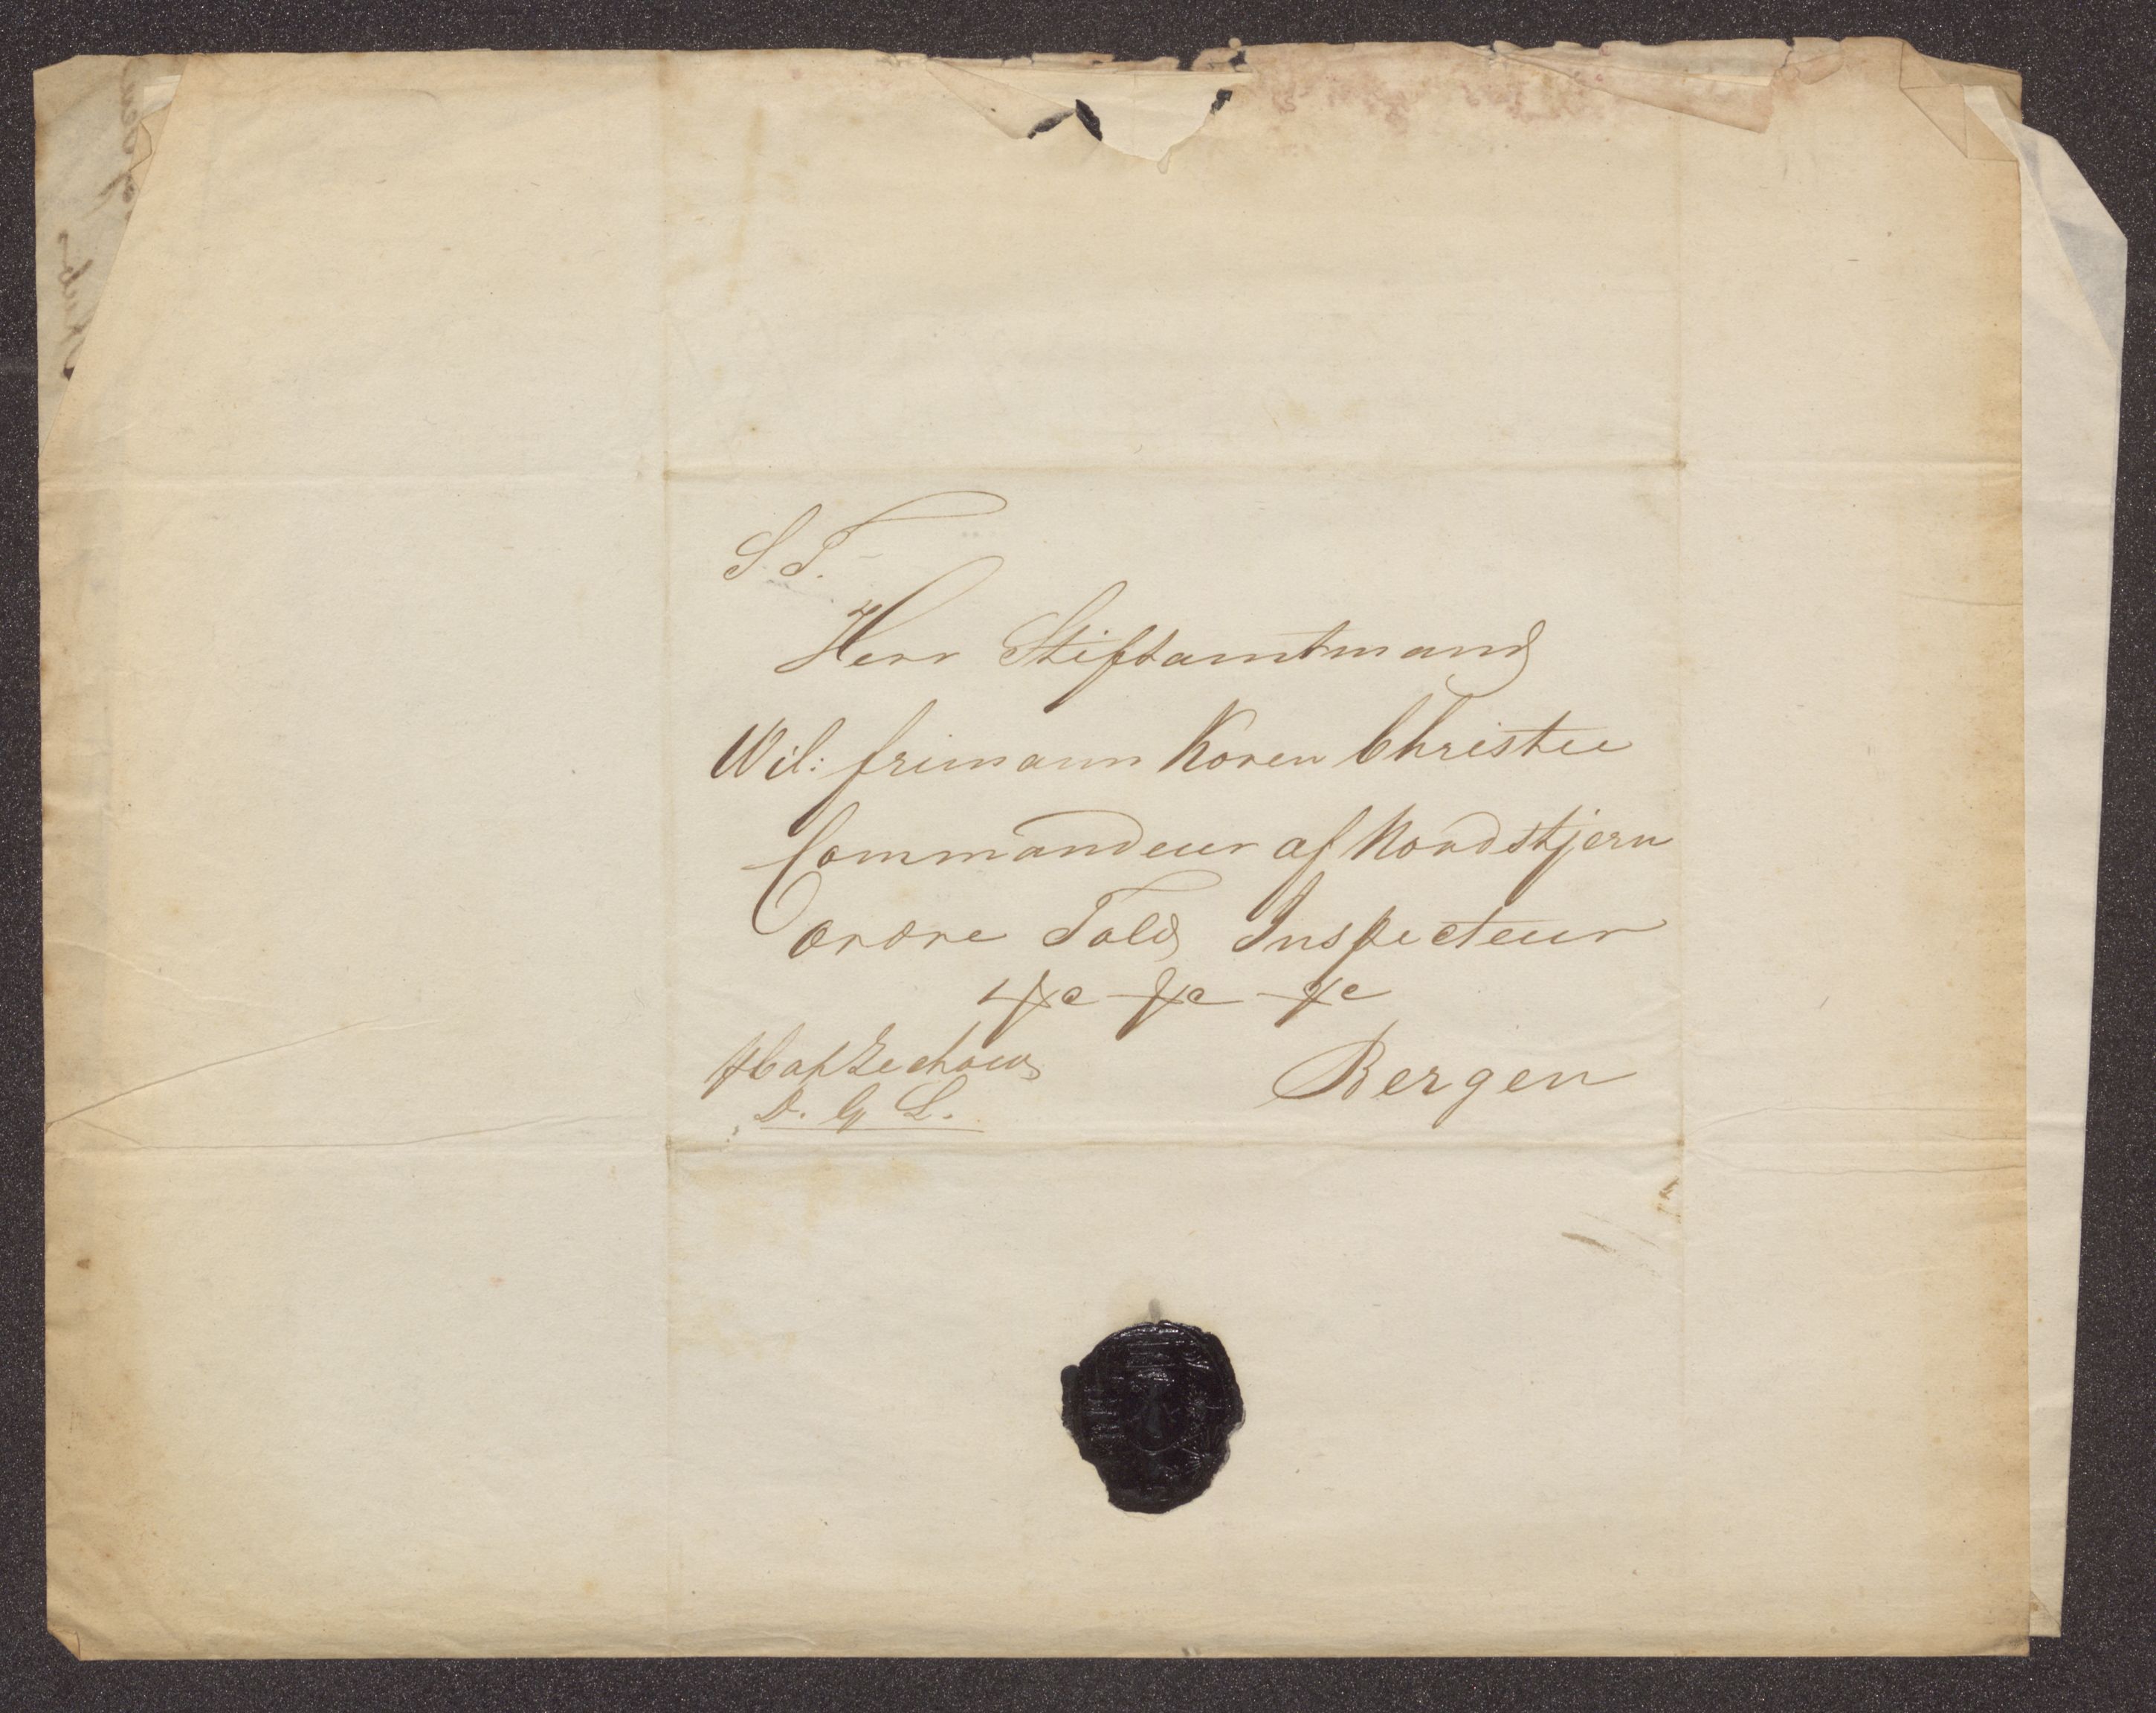 S. T.
Herr Stiftamtmand
Wil: frimann Koren Christie
Commandeur af Nordstjern
Ordre Told Inspecteur
&c &c &c
Bergen
D. G. L.